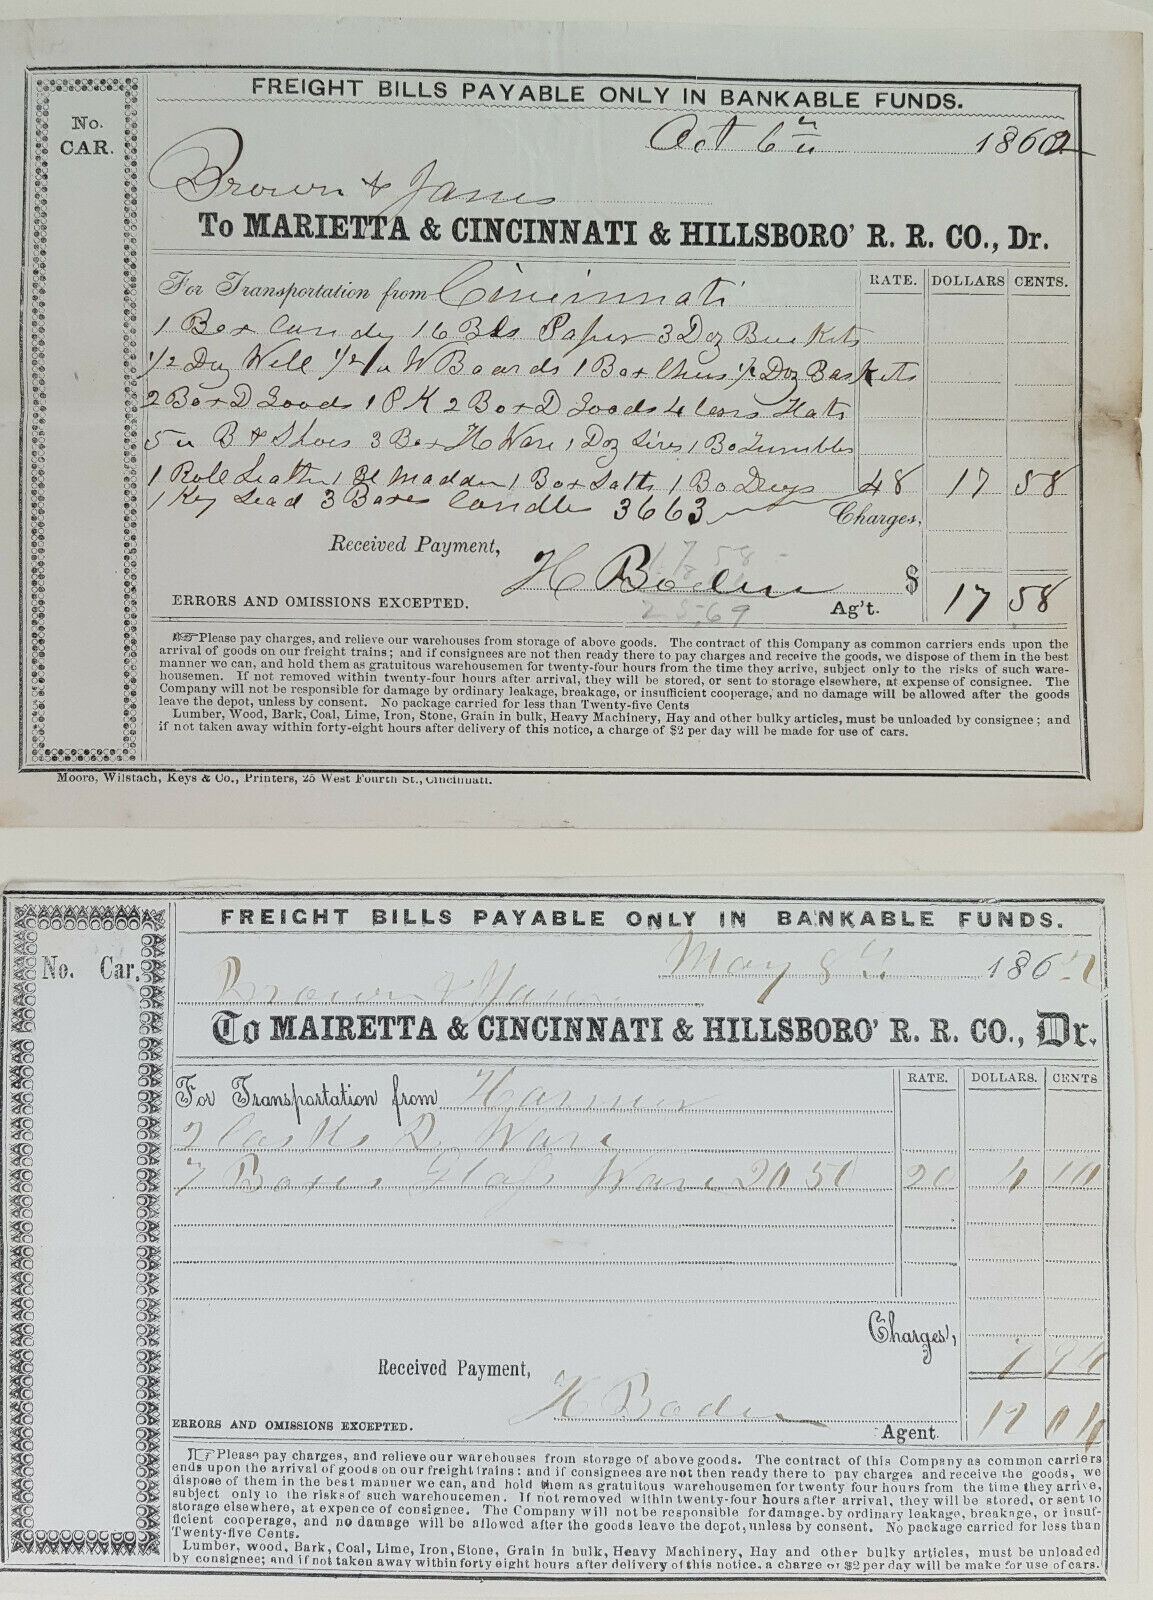 FREIGHT BILLS PAYABLE ONLY IN BANKABLE FUNDS.
No.
CAR.
Oct 6th 1862
Brown & Janes
To MARIETTA & CINCINNATI & HILLSBORO' R. R. CO., Dr.
For Transportation from Cincinnati RATE. DOLLARS CENTS.
1 Box Candy 16 Bls Paper 3 Doz Buckets
1/2 Doz Well 1/2 " W Boards 1 Box 1/2 Doz Baskets
2 Box D Goods 1 P K 2 Box D Goods 4 Hats
5 " B & Shoes 3 Box H Ware 1 Doz 1 Bo Tumbles
1 Role Leather 1 Madder 1 Box 1 Bo Drugs 48 17 58
1 Keg Lead 3 Boxes Candles 3663 Charges,
17 58
Received Payment, H Boden $ 17 58
25,69
ERRORS AND OMISSIONS EXCEPTED. Ag't.
Please pay charges, and relieve our warehouses from storage of above goods. The contract of this Company as common carriers ends upon the
arrival of goods on our freight trains; and if consignees are not then ready there to pay charges and receive the goods, we dispose of them in the best
manner we can, and hold them as gratuitous warehousemen for twenty-four hours from the time they arrive, subject only to the risks of such ware-
housemen. If not removed within twenty-four hours after arrival, they will be stored, or sent to storage elsewhere, at expense of consignee. The
Company will not be responsible for damage by ordinary leakage, breakage, or insufficient cooperage, and no damage will be allowed after the goods
leave the depot, unless by consent. No package carried for less than Twenty-five Cents
Lumber, Wood, Bark, Coal, Lime, Iron, Stone, Grain in bulk, Heavy Machinery, Hay and other bulky articles, must be unloaded by consignee; and
if not taken away within forty-eight hours after delivery of this notice, a charge of $2 per day will be made for use of cars.
Moore, Wilstach, Keys & Co., Printers, 25 West Fourth St., Cincinnati.
FREIGHT BILLS PAYABLE ONLY IN BANKABLE FUNDS.
No. Car.
May 8th 186
Brown & Janes
To MAIRETTA & CINCINNATI & HILLSBORO' R. R. CO., Dr.
For Transportation from Harmer RATE. DOLLARS. CENTS
2 Casks Q. Ware
7 Boxes Glass Ware 2050 20 4 10
Charges,
Received Payment,
H Boden
ERRORS AND OMISSIONS EXCEPTED. Agent
Please pay charges, and relieve our warehouses from storage of above goods. The contract of this Company as common carriers
ends upon the arrival of goods on our freight trains: and if consignees are not then ready there to pay charges and receive the goods, we
dispose of them in the best manner we can, and hold them as gratuitous warehousemen for twenty four hours from the time they arrive,
subject only to the risks of such warehoucemen. If not removed within twenty-four hours after arrival, they will be stored, or sent to
storage elsewhere, at expence of consignee. The Company will not be responsible for damage. by ordinary leakage, breakage, or insuf-
ficient cooperage, and no damage will be allowed after the goods leave the depot, unless by consent. No package carried for less than
Twenty-five Cents.
Lumber, wood, Bark, Coal, Lime, Iron, Stone, Grain in bulk, Heavy Machinery, Hay and other bulky articles, must be unloaded
by consignee; and if not taken away within forty eight hours after delivery of this notice. a charge of $2 per day will be make for use of cars.